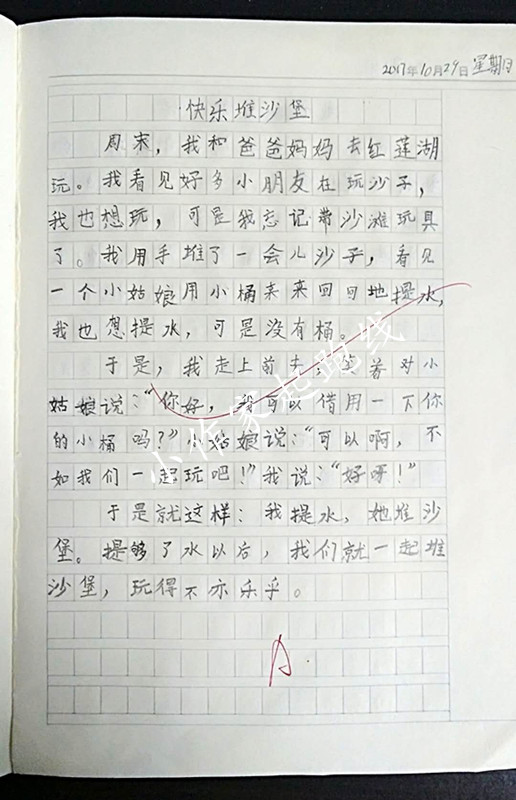 2017年10月29日 星期日
快乐堆沙堡
周末，我和爸爸妈妈去红莲湖
玩。我看见好多小朋友在玩沙子，
我也想玩，可是我忘记带沙滩玩具
了。我用手堆了一会儿沙子，看见
一个小姑娘用小桶来来回回地提水，
我也想提水，可是没有桶。
于是，我走上前去，笑着对小
姑娘说：“你好，我可以借用一下你
的小桶吗？”小姑娘说：“可以啊，不
如我们一起玩吧！”我说：“好呀！”
于是就这样：我提水，她堆沙
堡。提够了水以后，我们就一起堆
沙堡，玩得不亦乐乎。
A
小作家起跑线